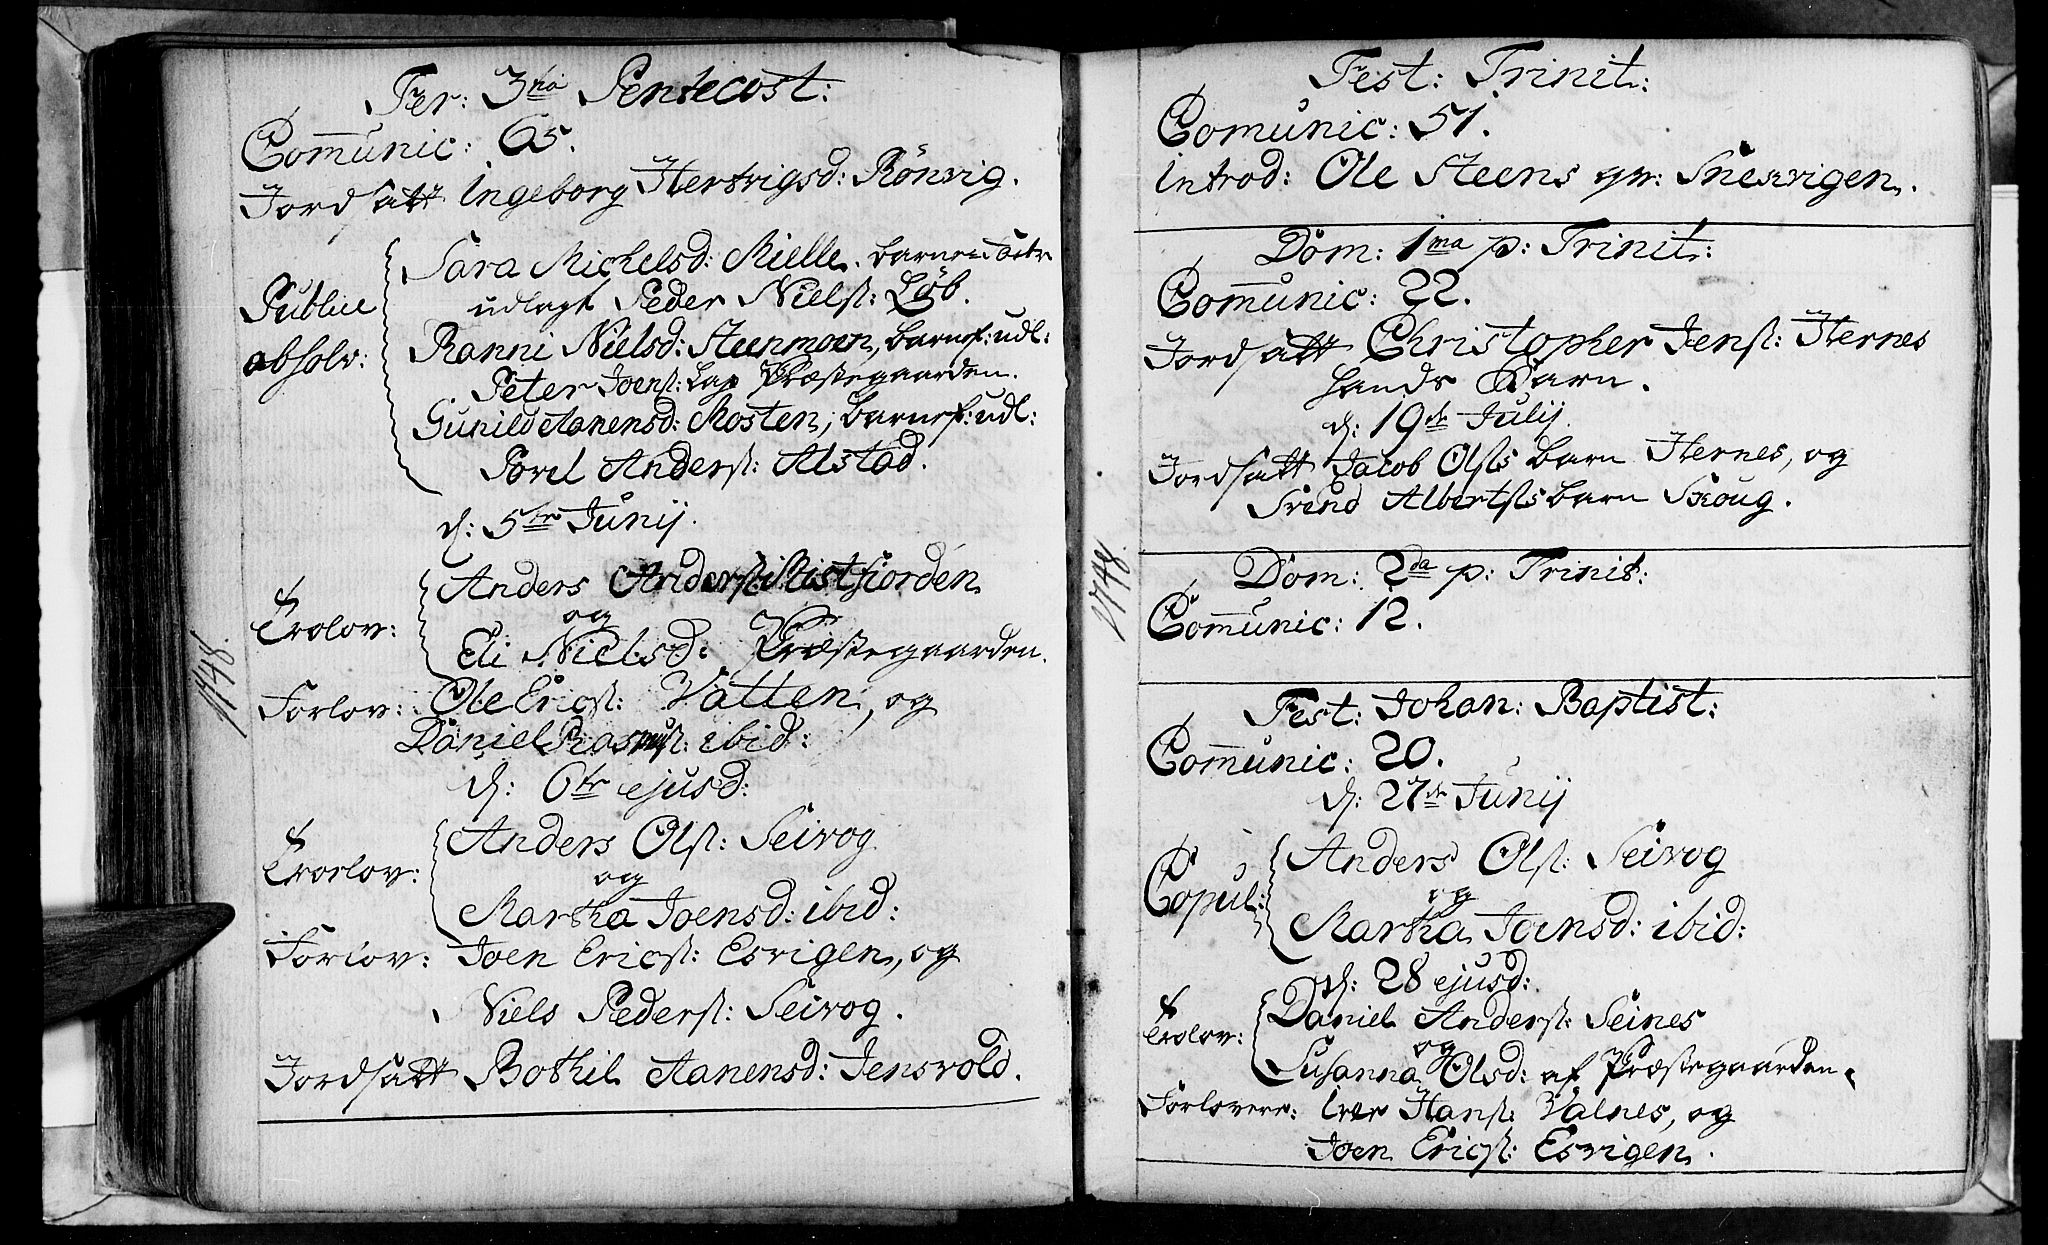 Fer: 3tia Pentecost:
Com̅unic: 65.
Jordsatt Ingeborg Hertvigsd: Rönvig.
Sara Michelsd: Mielle. barnefader
udlagt Peder Niels: Löb.
Public
absolv:
Ranni Nielsd: Steenmoen, barnef: udl:
Peter Joens: Lap Præstegaarden.
Gunild Aanensd: Mosten, barnef: udl:
Povel Anders: Alstad.
d: 5te Junij.
Trolov:
Anders Anders: Mistfiorden
og
Eli Nielsd: Præstegaarden.
Forlov: Ole Erics: Vatten, og
Daniel Rasmus: ibid:
d: 6te ejusd:
Trorlov:
Anders Ols: Seivog
og
Martha Joensd: ibid:
Forlov: Joen Erics: Esvigen, og
Niels Peders: Seivog.
Jordsatt Bothil Aanensd: Jensvold.
1748.
Fest: Trinit:
Comunic: 51.
introd: Ole Steens qv: Snesvigen.
Dom: 1ma p: Trinit:
Com̅unic: 22.
Jordsatt Christopher Jens: Hernes
hands Barn.
d: 19de Julij.
Jordsatt Jacob Olss barn Hernes, og
Svend Albertss barn Skoug.
1748.
Dom: 2da p: Trinit:
Com̅unic: 12.
Fest: Johan: Baptist:
Com̅unic: 20.
d: 27de Junij
Copul:
Anders Ols: Seivog
og
Martha Joensd: ibid:
d: 28 ejusd:
Trolov:
Daniel Anders: Seines
og
Susanna Olsd: af Præstegaarden.
Forlovere: Iver Hans: Valnes, og
Joen Erics: Esvigen.